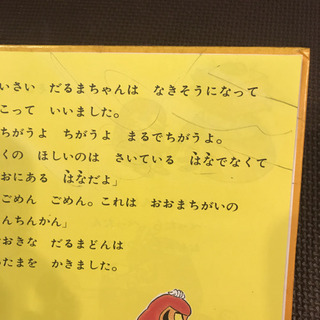 いさい　だるまちゃんは　なきそうになって
こって　いいました。
ちがうよ　ちがうよ　まるでちがうよ。
くの　ほしいのは　さいている　はなでなくて
おにある　はなだよ」
ごめん　ごめん。これは　おおまちがいの
んちんかん」
おきな　だるまどんは
たまを　かきました。